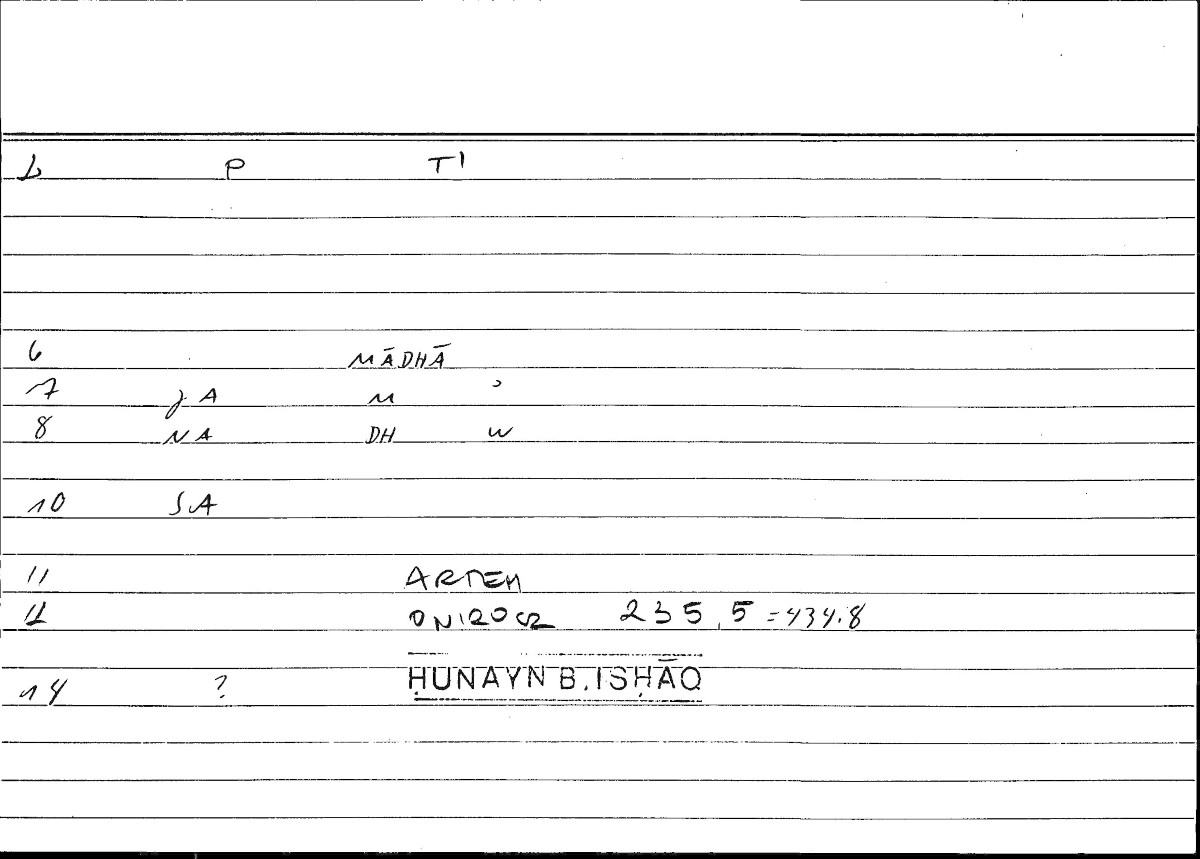 L P T'
6 MĀDHĀ
7 JA M ʾ
8 NA DH W
10 SA
11 ARTEM
12 ONIROCR 235,5 = 434.8
14 ? ḤUNAYN B. ISḤĀQ